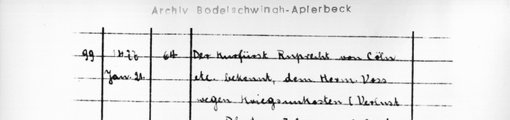 Archiv Bodelschwingh-Aplerbeck
99 1473 64 Der Kurfürst Ruprecht von Cöln
Jan. 21 etc. bekennt, dem Herm Voss
wegen Kriegsunkosten (Verlust